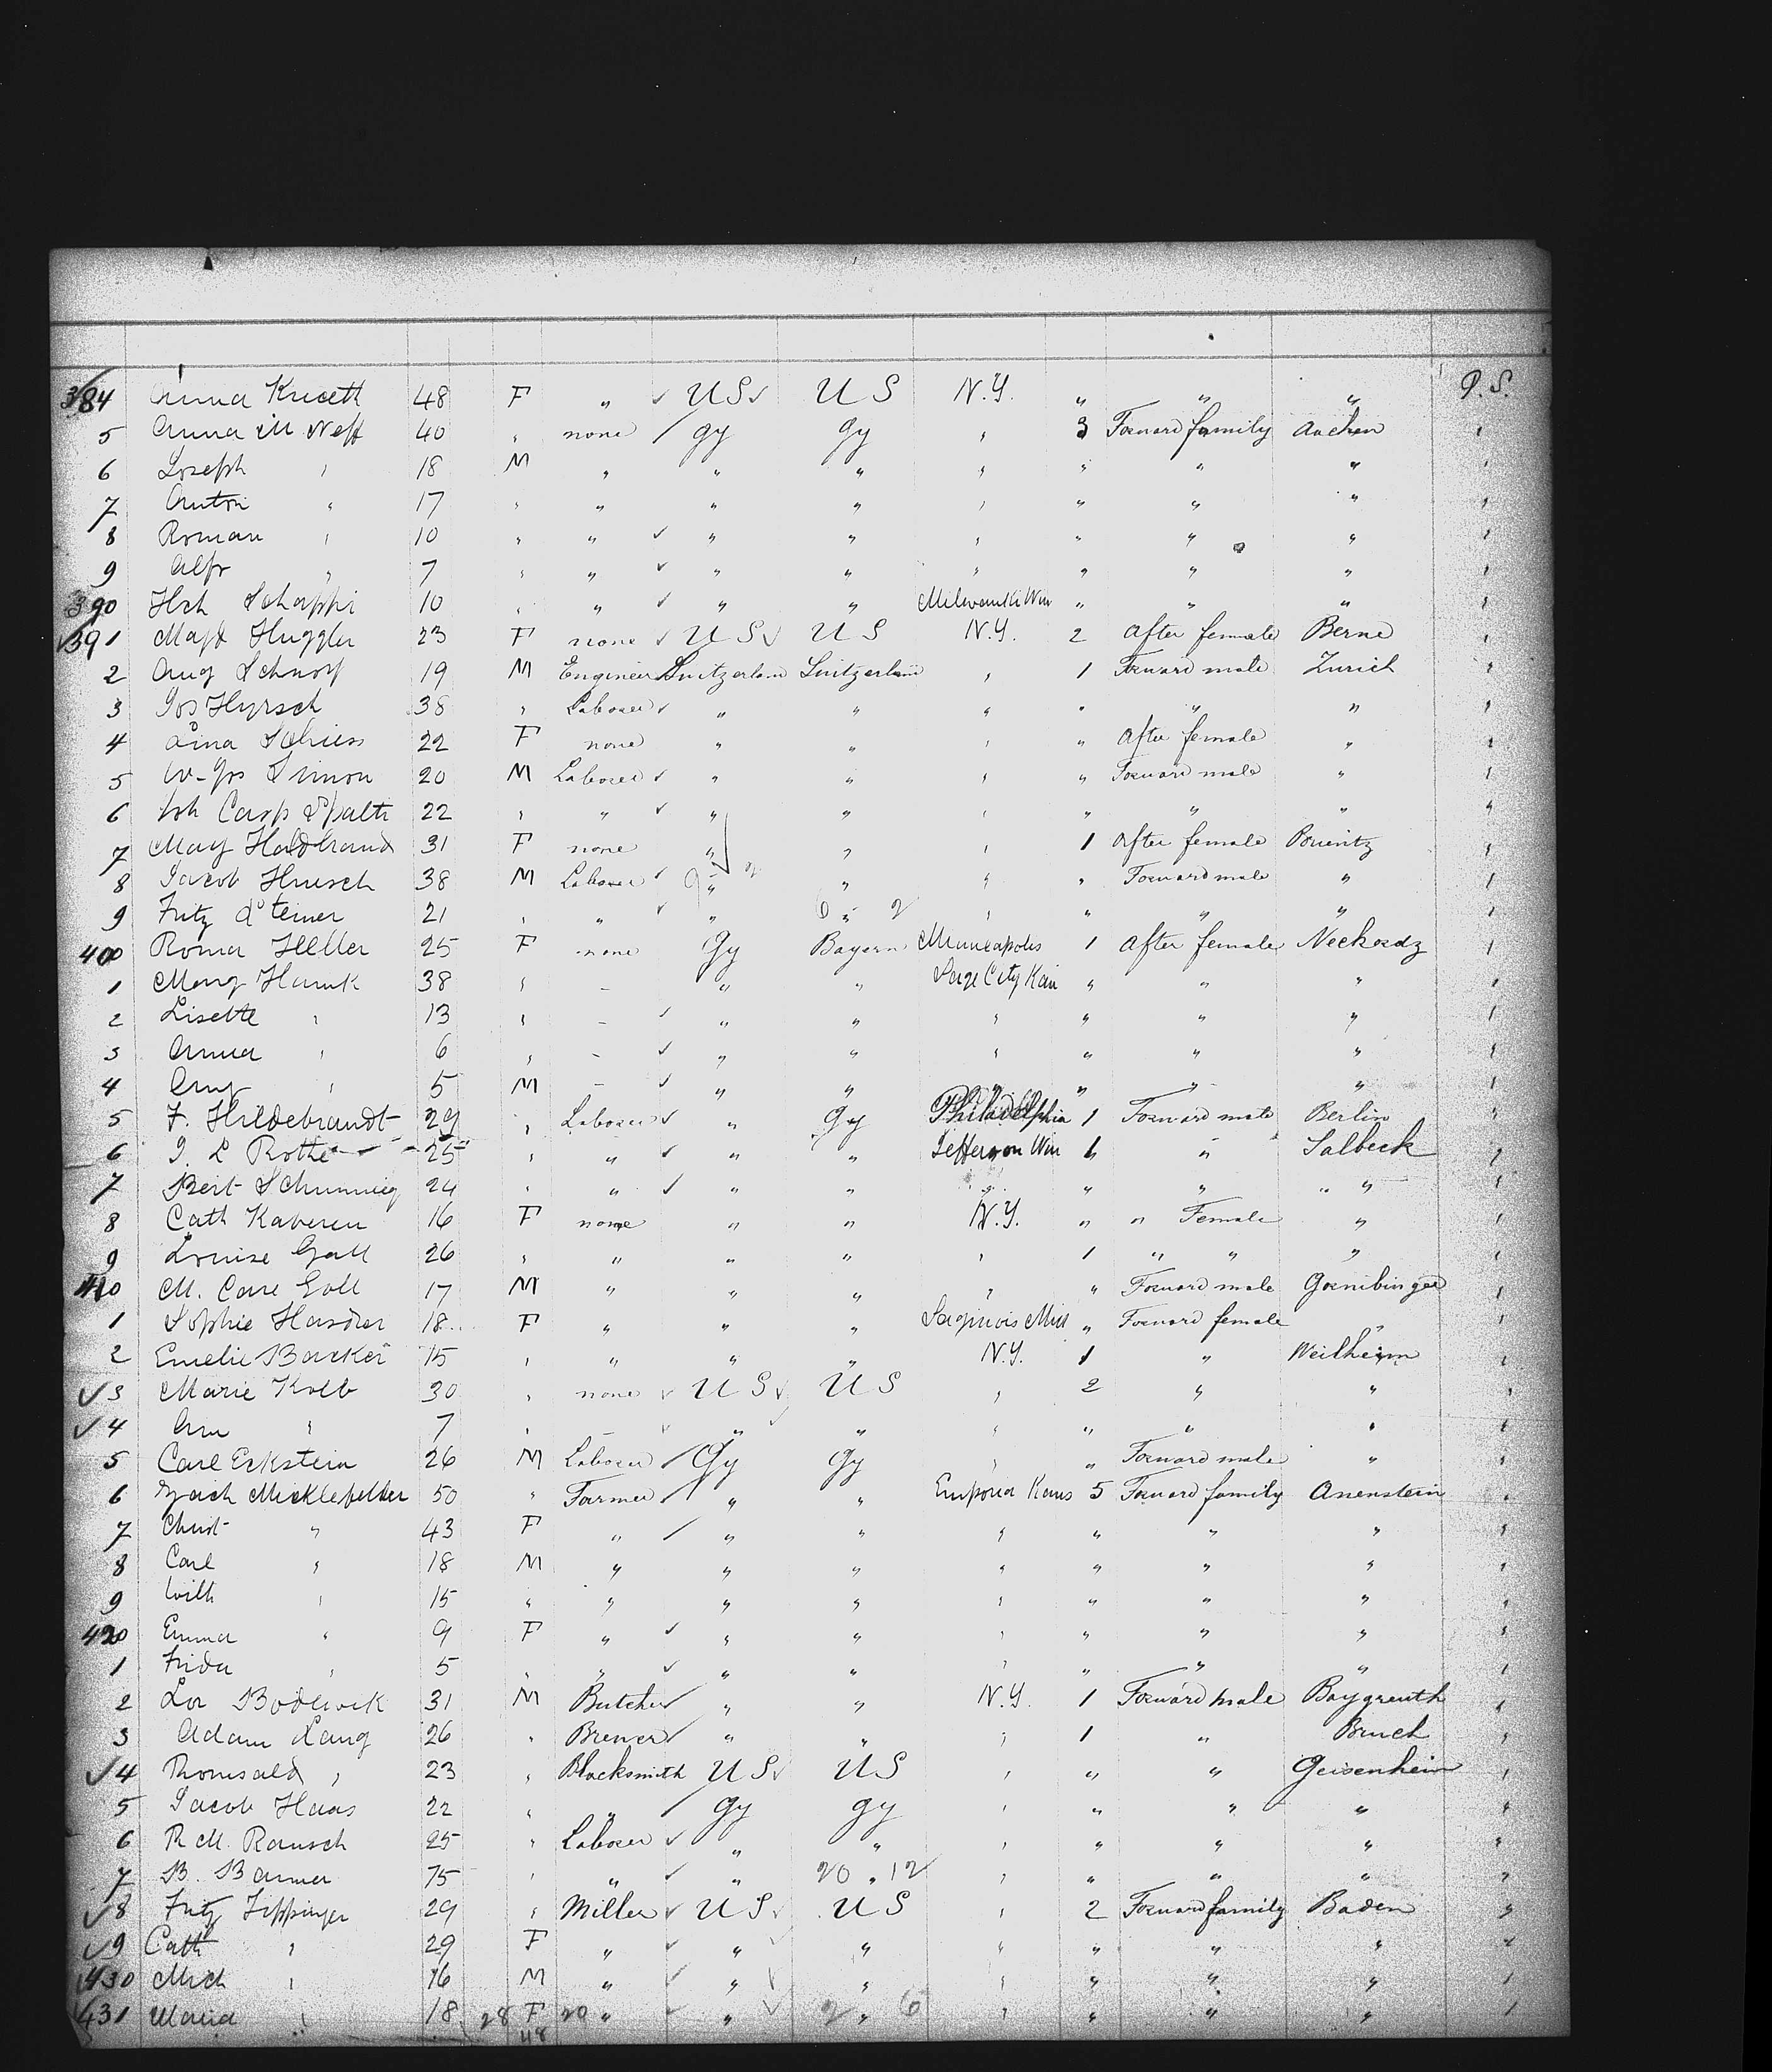 384 Anna Knceth 48 F " ✓ US ✓ US N.Y. " " " P.S.
5 Anna M Neff 40 " none / Gy Gy " 3 Forward family Aachen "
6 Joseph " 18 M " " " " " " " "
7 Anton " 17 " " " " " " " " "
8 Roman " 10 " " ✓ " " " " " " "
9 Alfr " 7 " " ✓ " " " " " " "
390 Hch Schappi 10 " " ✓ " " Milwauki Win " " " "
✓391 Magd Huggler 23 F none ✓ US ✓ US N.Y. 2 After female Berne "
2 Aug Schnorf 19 M Engineer Switzerland Switzerland " 1 Forward male Zurich "
3 Jos Hyrsch 38 " Laborer ✓ " " " " " " "
4 Lina Schiess 22 F none " " " " After female " "
5 W. Jos Simon 20 M Laborer ✓ " " " " Forward male " "
6 Joh Casp Spalti 22 " " ✓ " " " " " " "
7 Mary Haldbrand 31 F none " " " 1 After female Brienitz "
8 Jacob Huesch 38 M Laborer ✓ " " " " Forward male " "
9 Fritz Steiner 21 " " ✓ " " " " " " "
400 Roma Heller 25 F none Gy Bayern Minneapolis 1 After female "
1 Marg Hauck 38 " – " " City Kan " " " "
2 Lisette " 13 " – ✓ " " " " " " "
3 Anna " 6 " – ✓ " " " " " " "
4 Aug " 5 M – ✓ " " " " " " "
5 F. Hildebrandt 29 " Laborer ✓ " Gy Philadelphia 1 Forward male Berlin "
6 J. L Rothe 25 " " ✓ " " Jefferson Win 1 " Salbeck "
7 Bert 24 " " ✓ " " " " " " "
8 Cath Kaveren 16 F none " " N.Y. " " Female " "
9 Louise Gall 26 " " " " " 1 " " " "
410 M. Carl Goll 17 M " " " " " Forward male "
1 Sophie Harder 18 F " " " Mich " Forward female " "
2 Emelie Backer 15 " " " " N.Y. 1 " Weilheim "
✓3 Marie Kolb 30 " none ✓ US ✓ US " 2 " " "
✓4 Ann " 7 " – ✓ " " " " " " "
5 Carl Eckstein 26 M Laborer / Gy Gy " " Forward male " "
6 Zach Micklefelder 50 " Farmer / " " Emporia Kans 5 Forward family Anenstein "
7 Christ " 43 F " / " " " " " " "
8 Carl " 18 M " " " " " " " "
9 Wilh " 15 " " " " " " " " "
420 Emma " 9 F " ✓ " " " " " " "
1 Frida " 5 " " ✓ " " " " " " "
2 Lor Bodewick 31 M Butcher / " " N.Y. 1 Forward male Baygreuth "
3 Adam Lang 26 " Brewer / " " " 1 " Bruch "
✓4 Romsald " 23 " Blacksmith US ✓ US " " " Geisenheim "
5 Jacob Haas 22 " " / Gy Gy " " " " "
6 R M. Rausch 25 " Laborer ✓ " " " " " " "
7 B. Barmer 75 " " ✓ " 20 " 12 " " " " "
✓8 Fritz Zippinger 29 " Miller ✓ US ✓ US " 2 Forward family Baden "
✓9 Cath " 29 F " ✓ " " " " " " "
✓430 Mich " 16 M " ✓ " ✓ " " " " " "
✓431 Maria " 18 28 F 20 " ✓ " ✓ 2 " 6 " " " " "
48